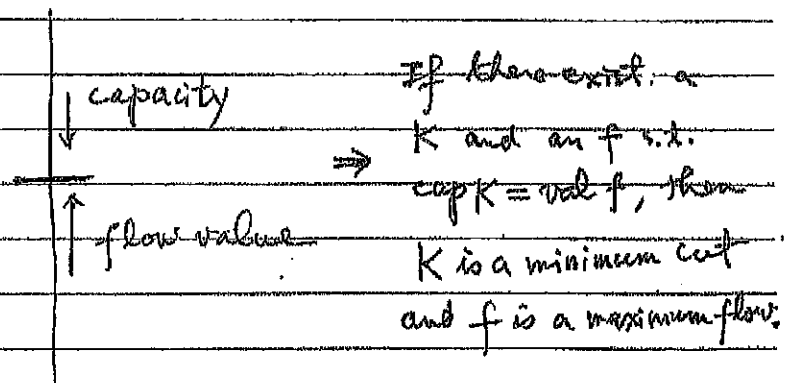 capacity
flow value
⇒
If there exist a
K and an f s.t.
cap K = val f, then
K is a minimum cut
and f is a maximum flow.